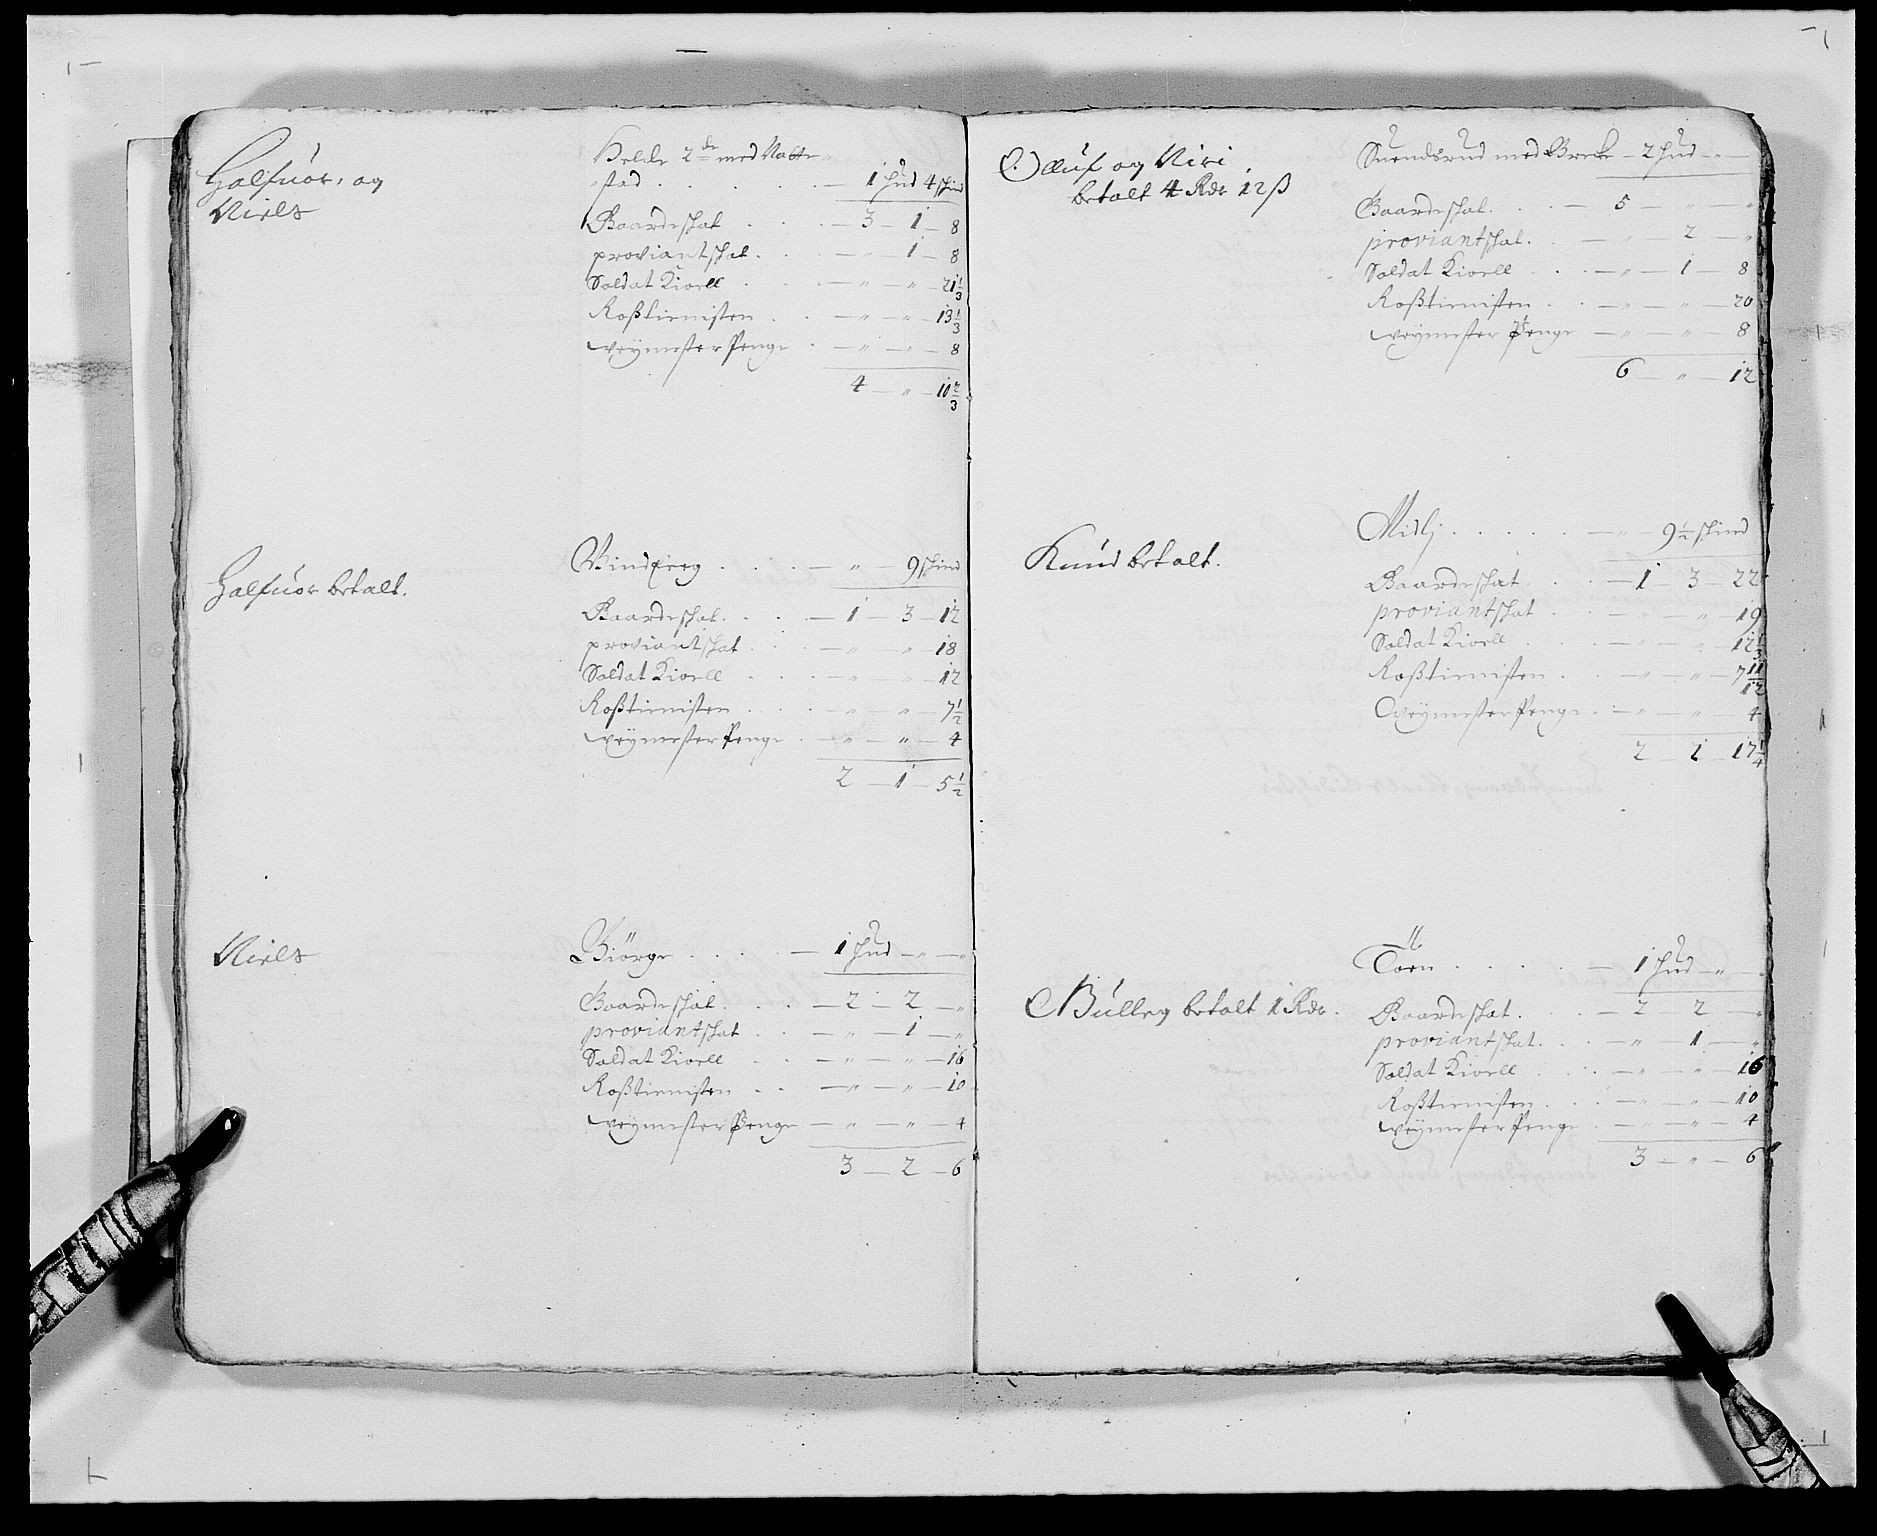 Halfuor, og
Niels
Helle 2de med Natte
stad . . . . . — 1 hud 4 skind
Gaardeskat . . . — 3 — 1 — 8
proviantskat . . . — „ — 1 — 8
Soldat Kioell . . . — „ — „ — 21 1/3
Roßtienisten . . . — „ — „ — 13 1/3
veymester Penge . — „ — „ — 8
4 — „ — 10 2/3
Halfuor betalt.
. . . . — „ — 9 skind
Gaardeskat . . . — 1 — 3 — 12
proviantskat . . . — „ — „ — 18
Soldat Kioell . . . — „ — „ — 12
Roßtienisten . . . — „ — „ — 7 1/2
veymester Penge . — „ — „ — 4
2 — 1 — 5 1/2
Niels
Biörge . . . . — 1 hud — „ — „
Gaardeskat . . . — 2 — 2 — „
proviantskat . . — „ — 1 — „
Soldat Kioell . . . — „ — „ — 16
Roßtienisten . . — „ — „ — 10
veymester Penge — „ — „ — 4
3 — 2 — 6
Olluf og Siri
betalt 4 Rdr 12 ß
Suendsrud med Breche — 2 hud — „ —
Gaardeskat . . . — 5 — „ — „
proviantskat . . — „ — 2 — „
Soldat Kioell . . . — „ — 1 — 8
Roßtienisten . . — „ — „ — 20
veymester Penge — „ — „ — 8
6 — „ — 12
Knud betalt.
Midli . . . . . — „ — 9 1/2 skind
Gaardeskat . . . — 1 — 3 — 22
proviantskat . . — „ — „ — 19
Soldat Kioell . . . — „ — „ — 12 2/3
Roßtienisten . . — „ — „ — 7 11/12
Veymester Penge . — „ — „ — 4
2 — 1 — 17 1/4
Gulleg betalt 1 Rdr.
Töen . . . . . — 1 hud — „ — „
Gaardeskat . . . — 2 — 2 — „
proviantskat . . . — „ — 1 — „
Soldat Kioell . . . — „ — „ — 16
Roßtienisten . . . — „ — „ — 10
veymester Penge . — „ — „ — 4
3 — „ — 6